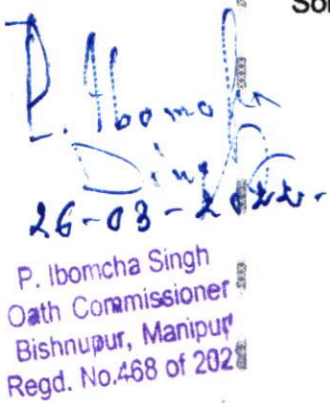 So
P. Ibomcha
Singh
26-03-2022.
P. Ibomcha Singh
Oath Commissioner
Bishnupur, Manipur
Regd. No.468 of 202